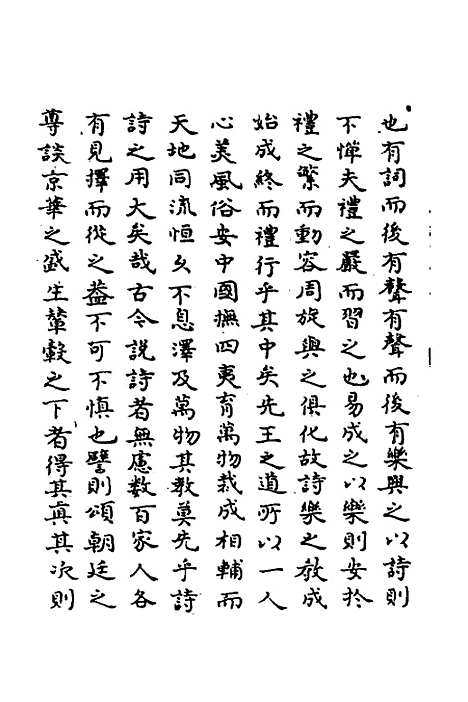 也有詞而後有聲有聲而後有樂興之以詩則
不憚夫禮之嚴而習之也易成之以樂則安於
禮之繁而動容周旋與之俱化故詩樂之教成
始成終而禮行乎其中矣先王之道所以一人
心美風俗安中國撫四夷育萬物裁成相輔而
天地同流恒久不息澤及萬物其教莫先乎詩
詩之用大矣哉古今說詩者無慮數百家人各
有見擇而從之盖不可不慎也譬則頌朝廷之
尊談京華之盛生輦轂之下者得其真其次則